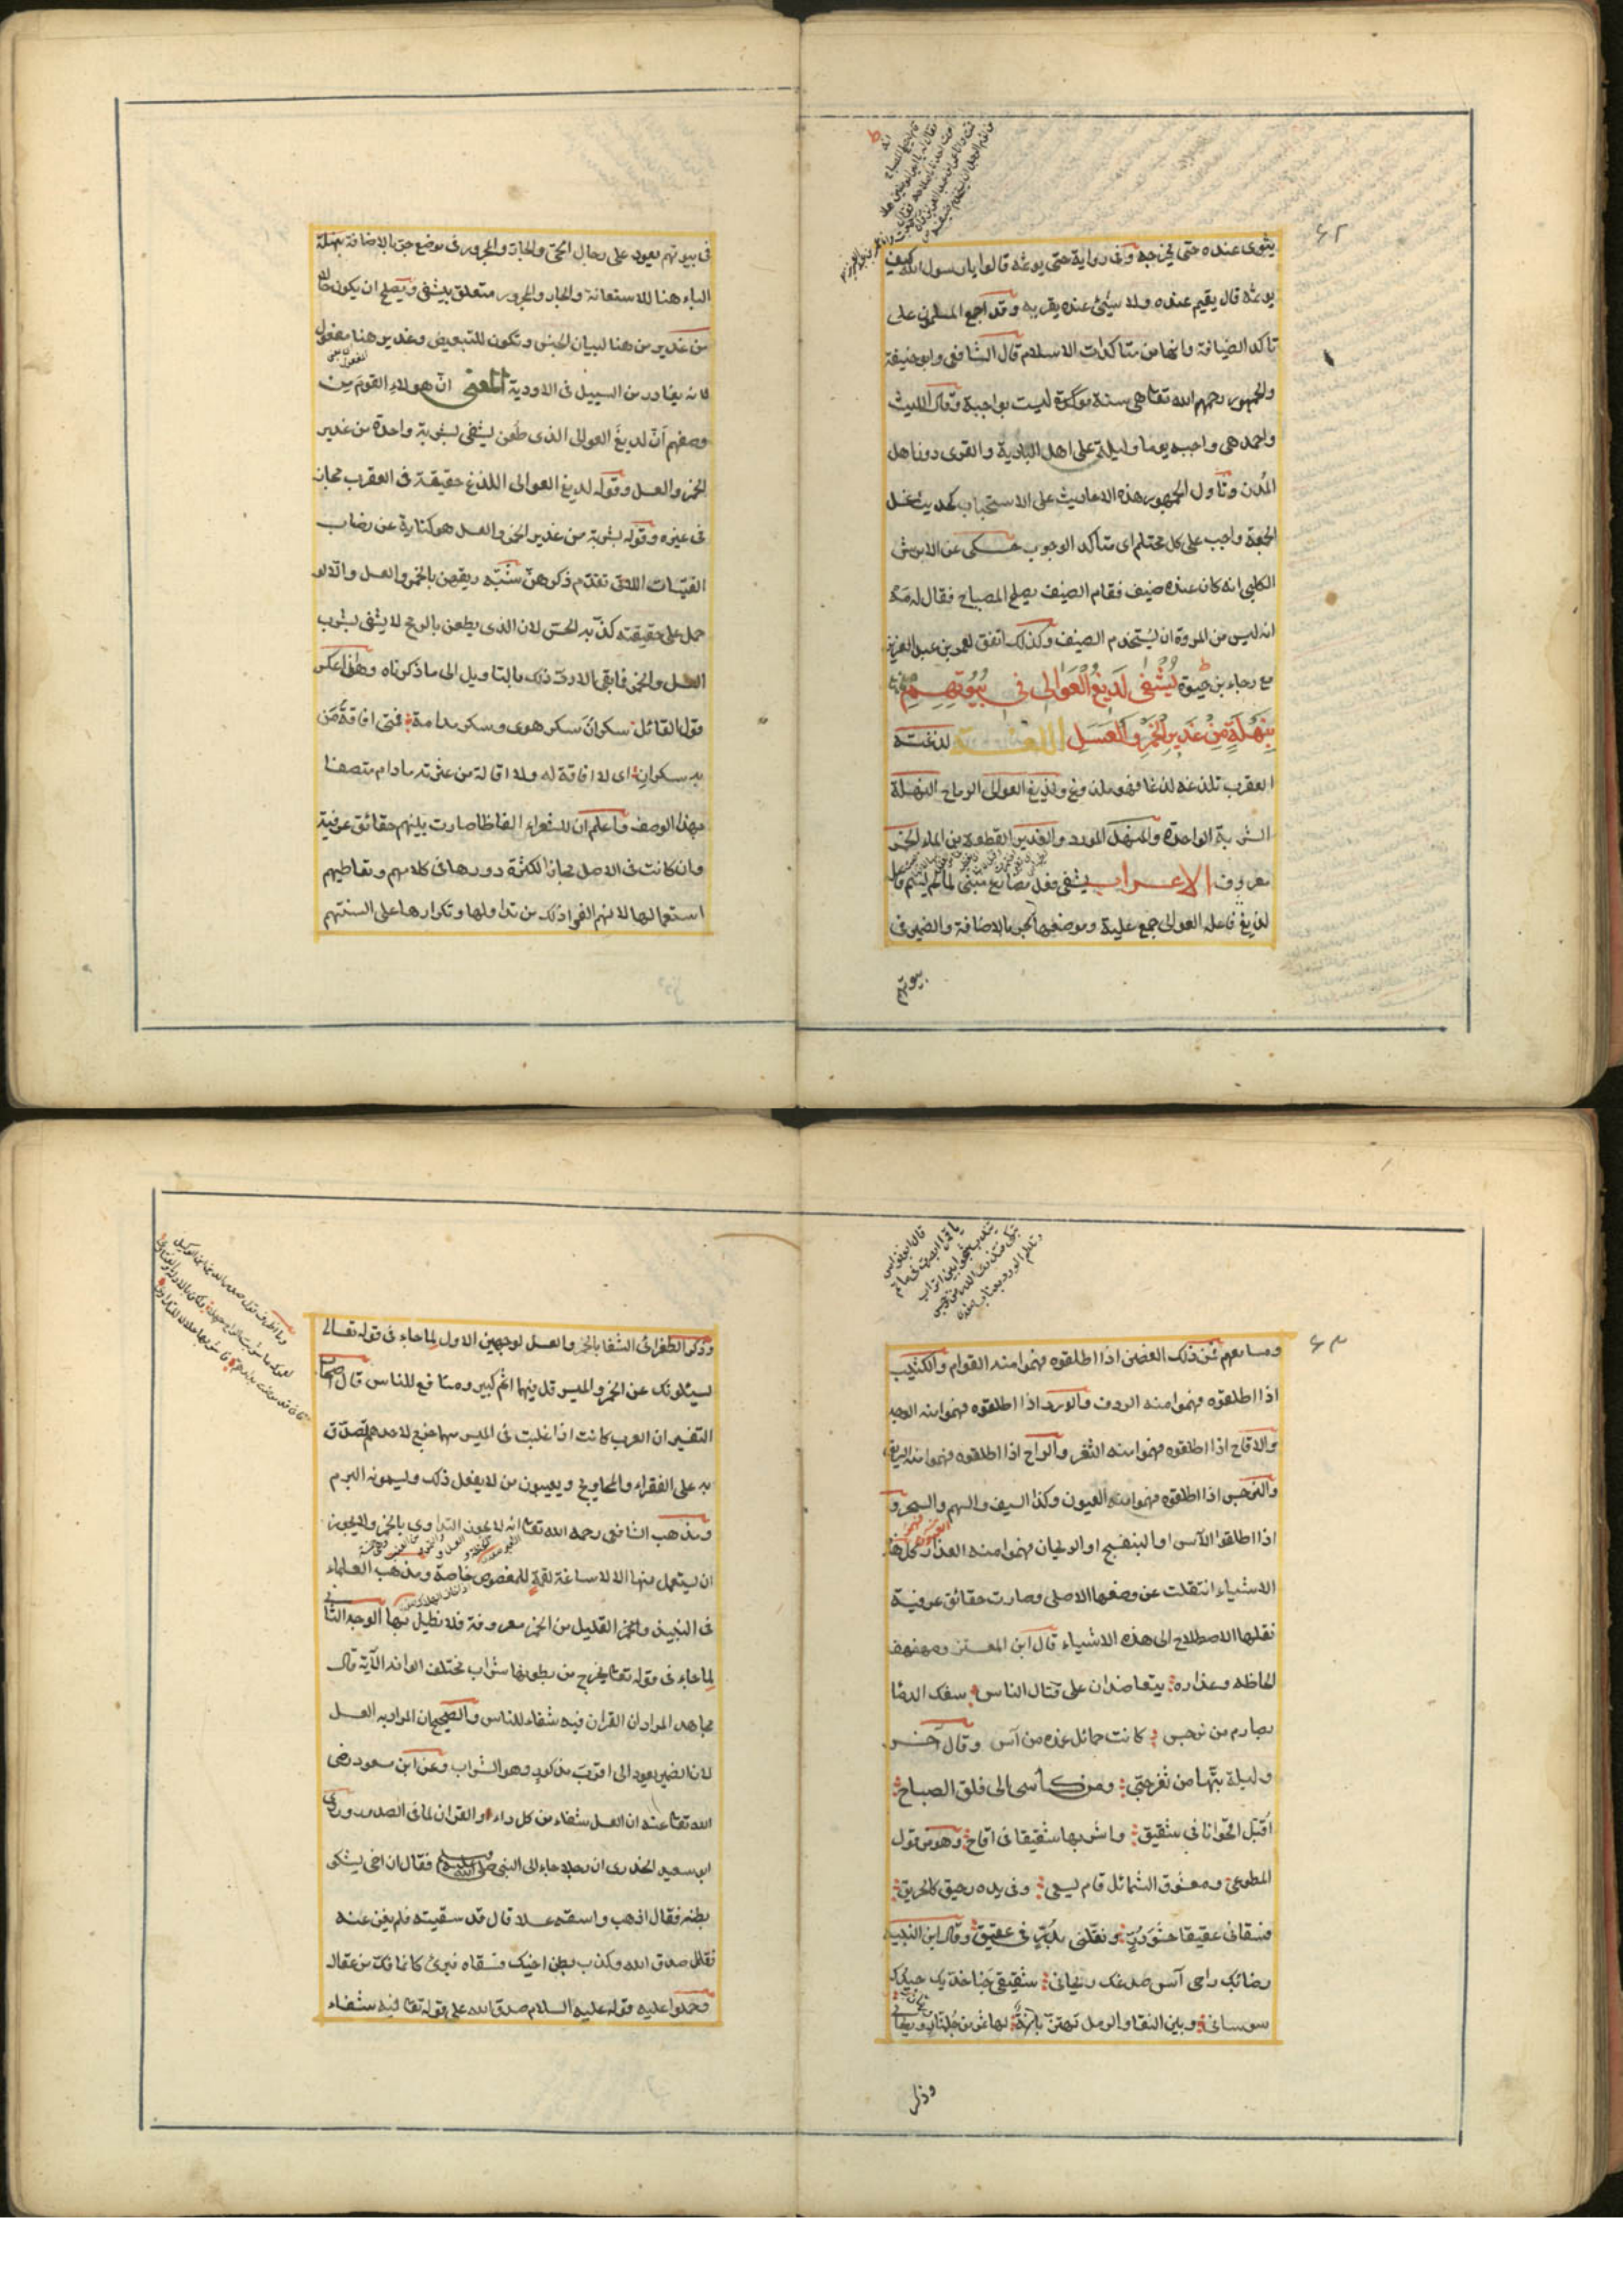 ٤٢
يثوى عنده حتى يخرجه وفى رواية حتى يوثمه قالوا يا رسول الله كيف
يوثمه قال يقيم عنده ولا شئ عنده يقريه وقد اجمع المسلمون على
تاكد الضيافة وانها من متاكدات الاسلام قال الشافعى وابو حنيفة
والجمهور رحمهم الله تعا هى سنة موكدة ليست بواجبة وقال الليث
واحمد هى واجبه يوما وليلة على اهل البادية والقرى دون اهل
المدن وتأول الجمهور هذه الاحاديث على الاستحباب كحديث غسل
الجمعة واجب على كل محتلم اى متاكد الوجوب حكى عن الابرش
الكلبى انه كان عنده ضيف فقام الضيف يصلح المصباح فقال له مه
انه ليس من المروة ان يستخدم الضيف وكذلك اتفق لعمر بن عبد العزيز
مع رجاء بن حيوة يُشْفٰى لَدِيغُ الْعَوَالى فى بُيُوتِهِم
بِنَهْلَةٍ مِنْ غَدِيرِ الْخَمْرِ وَالْعَسَلِ اللغة لدغته
العقرب تلدغه لدغا فهو ملدوغ ولديغ العوالى الرماح النهلة
الشربة الواحدة والمنهل المورد والغدير القطعة من الماء الخمر
معروف الاعراب يشفى فعل مضارع مبنى لما لم يسم فاعله
لديغ فاعله العوالى جمع علية وموضعها الجر بالاضافة والضمير فى
بيوتهم
فى بيوتهم يعود على رجال الحى والجار والمجرور فى موضع جر بالاضافة بنهلة
الباء هنا للاستعانة والجار والمجرور متعلق بيشفى ويصلح ان يكون حالا
من غدير من هنا لبيان الجنس وتكون للتبعيض وغدير هنا مفعول
لانه يغادر من السيل فى الاودية المعنى انّ هولاء القوم من
وصفهم أنّ لديغَ العوالى الذى طُعن يشفى بشربة واحدة من غدير
الخمر والعسل وقوله لديغ العوالى اللدغ حقيقة فى العقرب مجاز
فى غيره وقوله بشربة من غدير الخمر والعسل هو كناية عن رضاب
الفتيات اللاتى تقدّم ذكرهنّ شبّه ريقهن بالخمر والعسل والّا لو
حمل على حقيقته كذّبه الحسّ لان الذى يطعن بالرمح لا يشفى بشرب
العسل والخمر فابقى الا ردّ ذلك بالتاويل الى ما ذكرناه وهذا عكس
قول القائل سكرانَ سكر هوى وسكر مدامة فمتى افاقةُ مَن
به سكرانِ اى لا افاقة له ولا اقالة من عثرته مادام متصفا
بهذا الوصف واعلم ان للشعراء الفاظا صارت بينهم حقائق عرفية
وان كانت فى الاصل مجازا لكثرة دورها فى كلامهم وتعاطيهم
استعمالها لانهم الفوا ذلك من تداولها وتكرارها على السنتهم
٤٣
قال ابو نواس
يا قمرا ابصرت فى ماتم
يندب شجوا بين اتراب
يبكى فيذرى الدر من نرجس
ويلطم الورد بعناب
ومسامعهم فمن ذلك الغصن اذا اطلقوه فهموا منه القوام والكثيب
اذا اطلقوه فهموا منه الردف والورد اذا اطلقوه فهموا منه الوجه
والاقاح اذا اطلقوه فهموا منه الثغر والراح اذا اطلقوه فهموا منه الريق
والنرجس اذا اطلقوه فهموا منه العيون وكذا السيف والسهم والسحر و
اذا اطلقوا الآس او البنفسج او الريحان فهموا منه العذار كل هذه
الاشياء انتقلت عن وضعها الاصلى وصارت حقائق عرفية
نقلها الاصطلاح الى هذه الاشياء قال ابن المعتز ومهفهف
الحاظه وعذاره يتعاضدان على قتال الناس سفك الدما
بصارم من نرجس كانت حمائل غمده من آس وقال آخر
وليلة بتّها من ثغر حبّى ومن كاسى الى فلق الصباح
اُقبّل اقحوانا فى شقيق واشربها شقيقا فى اقاح وهو من قول
المطوعى ومعشوق الشمائل قام يسعى وفى يده رحيق كالحريق
فسقانى عقيقا حشوَ دُرٍّ ونقلنى بدُرٍّ فى عقيق وقال ابن النبيه
رضابك راحى آس صدغك ريحانى شقيقى جنا خديك جيدك
سوسانى وبين النقا والرمل تهتز بانة لها ثمر من جلنار ورمان
وذكر
وذكر الطغرائى الشفا بالخمر والعسل لوجهين الاول لما جاء فى قوله تعالى
يسئلونك عن الخمر والميسر قل فيهما اثم كبير ومنافع للناس قال اصحاب
التفسير ان العرب كانت اذا غلبت فى الميسر سهما خرج لاحدهم تصدق
به على الفقراء والمحاويج ويعيبون من لا يفعل ذلك ويسمونه البرم
ومذهب الشافعى رحمه الله تعا انه لا يجوز التداوى بالخمر ولا يجوز
ان يستعمل منها الا لاساغة لقمة للمغصوص خاصة ومذهب العلماء
فى النبيذ والخمر القليل من الخمر معروفة فلا نطيل بها الوجه الثانى
لما جاء فى قوله تعا يخرج من بطونها شراب مختلف الوانه الآية قال
مجاهد المراد ان القران فيه شفاء للناس والصحيح ان المراد به العسل
لان الضمير يعود الى اقرب مذكور وهو الشراب وعن ابن مسعود رضى
الله تعا عنه ان العسل شفاء من كل داء والقران لما فى الصدور وروى
ابو سعيد الخدرى ان رجلا جاء الى النبى صلى الله عليه وسلم فقال ان اخى يشكو
بطنه فقال اذهب واسقه عسلا قال قد سقيته فلم يغن عنه
فقال صدق الله وكذب بطن اخيك فسقاه فبرئ كانما فك من عقال
وحملوا عليه قوله عليه السلام صدق الله على قوله تعا فيه شفاء